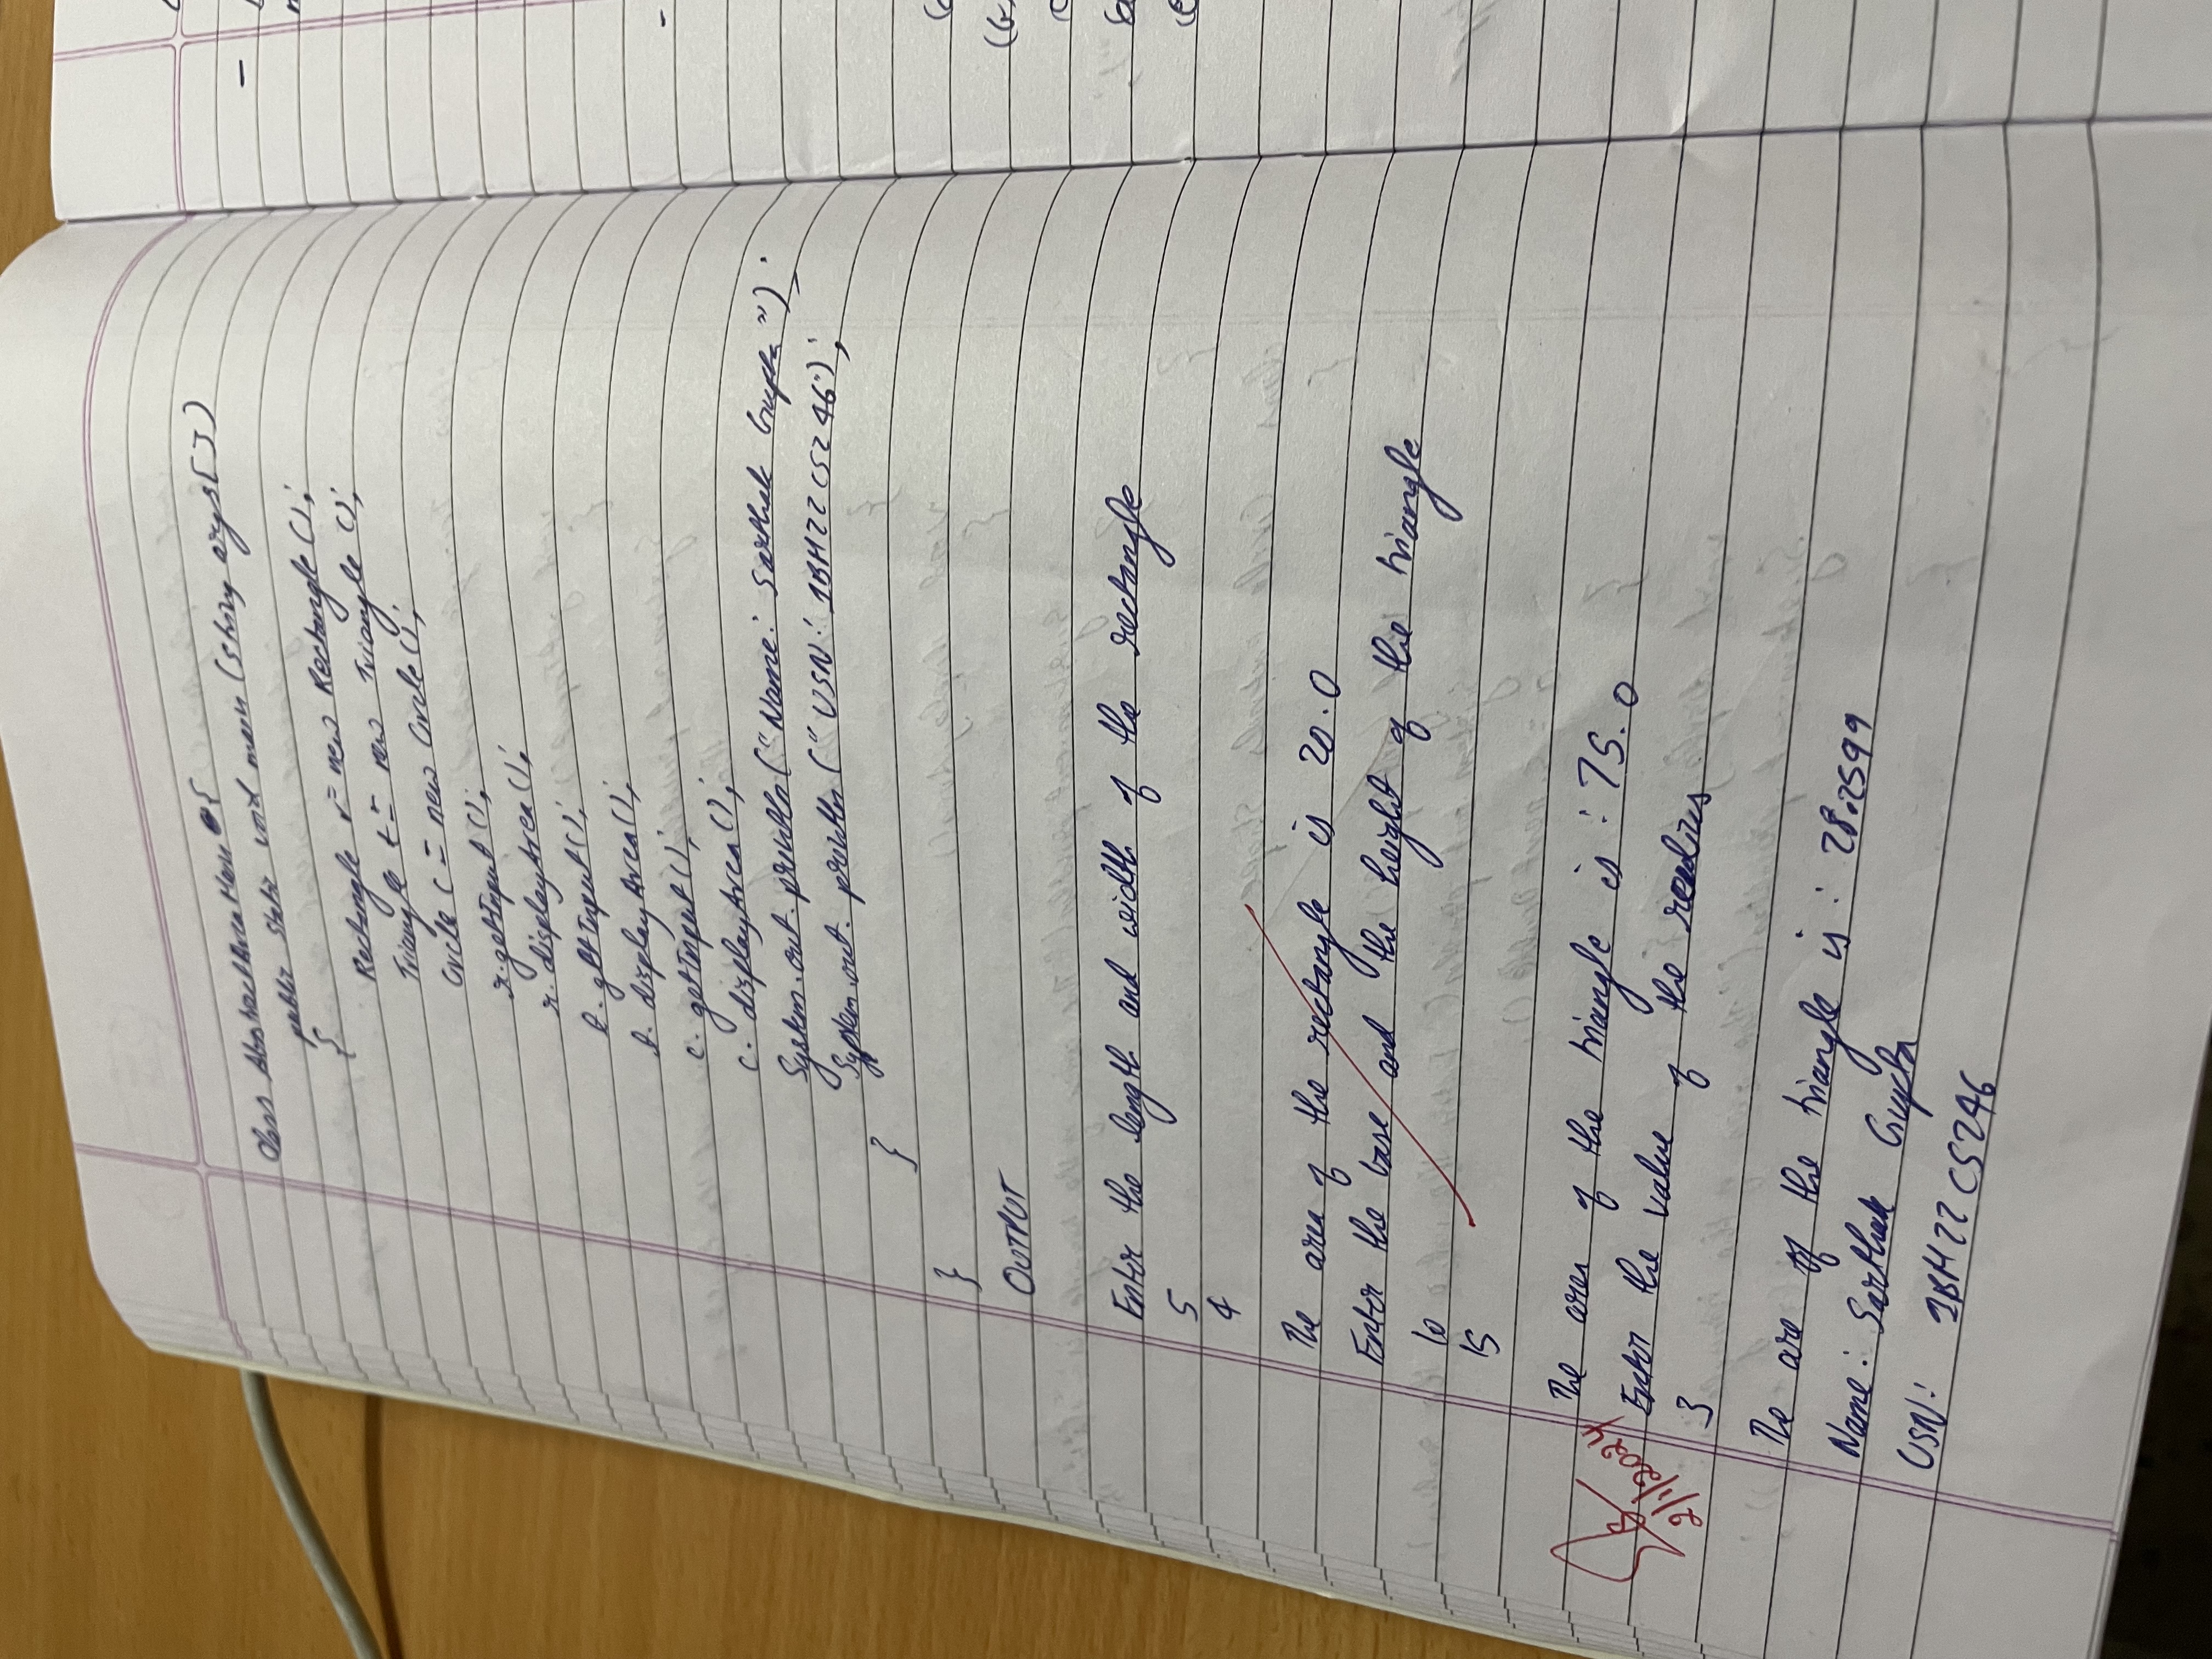 class AbstractAreaMain {
public static void main (String args[])
{
Rectangle r = new Rectangle ();
Triangle t = new Triangle ();
Circle c = new Circle ();
r. getInput ();
r. displayArea ();
t. getInput ();
t. displayArea ();
c. getInput ();
c. displayArea ();
System.out.println ("Name: Sarthak Gupta");
System.out.println ("USN: 1BM22CS246");
}
}
OUTPUT
Enter the length and width of the rectangle
5
4
The area of the rectangle is 20.0
Enter the base and the height of the triangle
10
15
The area of the triangle is : 75.0
Enter the value of the readius
3
2/1/2024
The are of the triangle is : 28.2599
Name: Sarthak Gupta
USN: 1BM22CS246